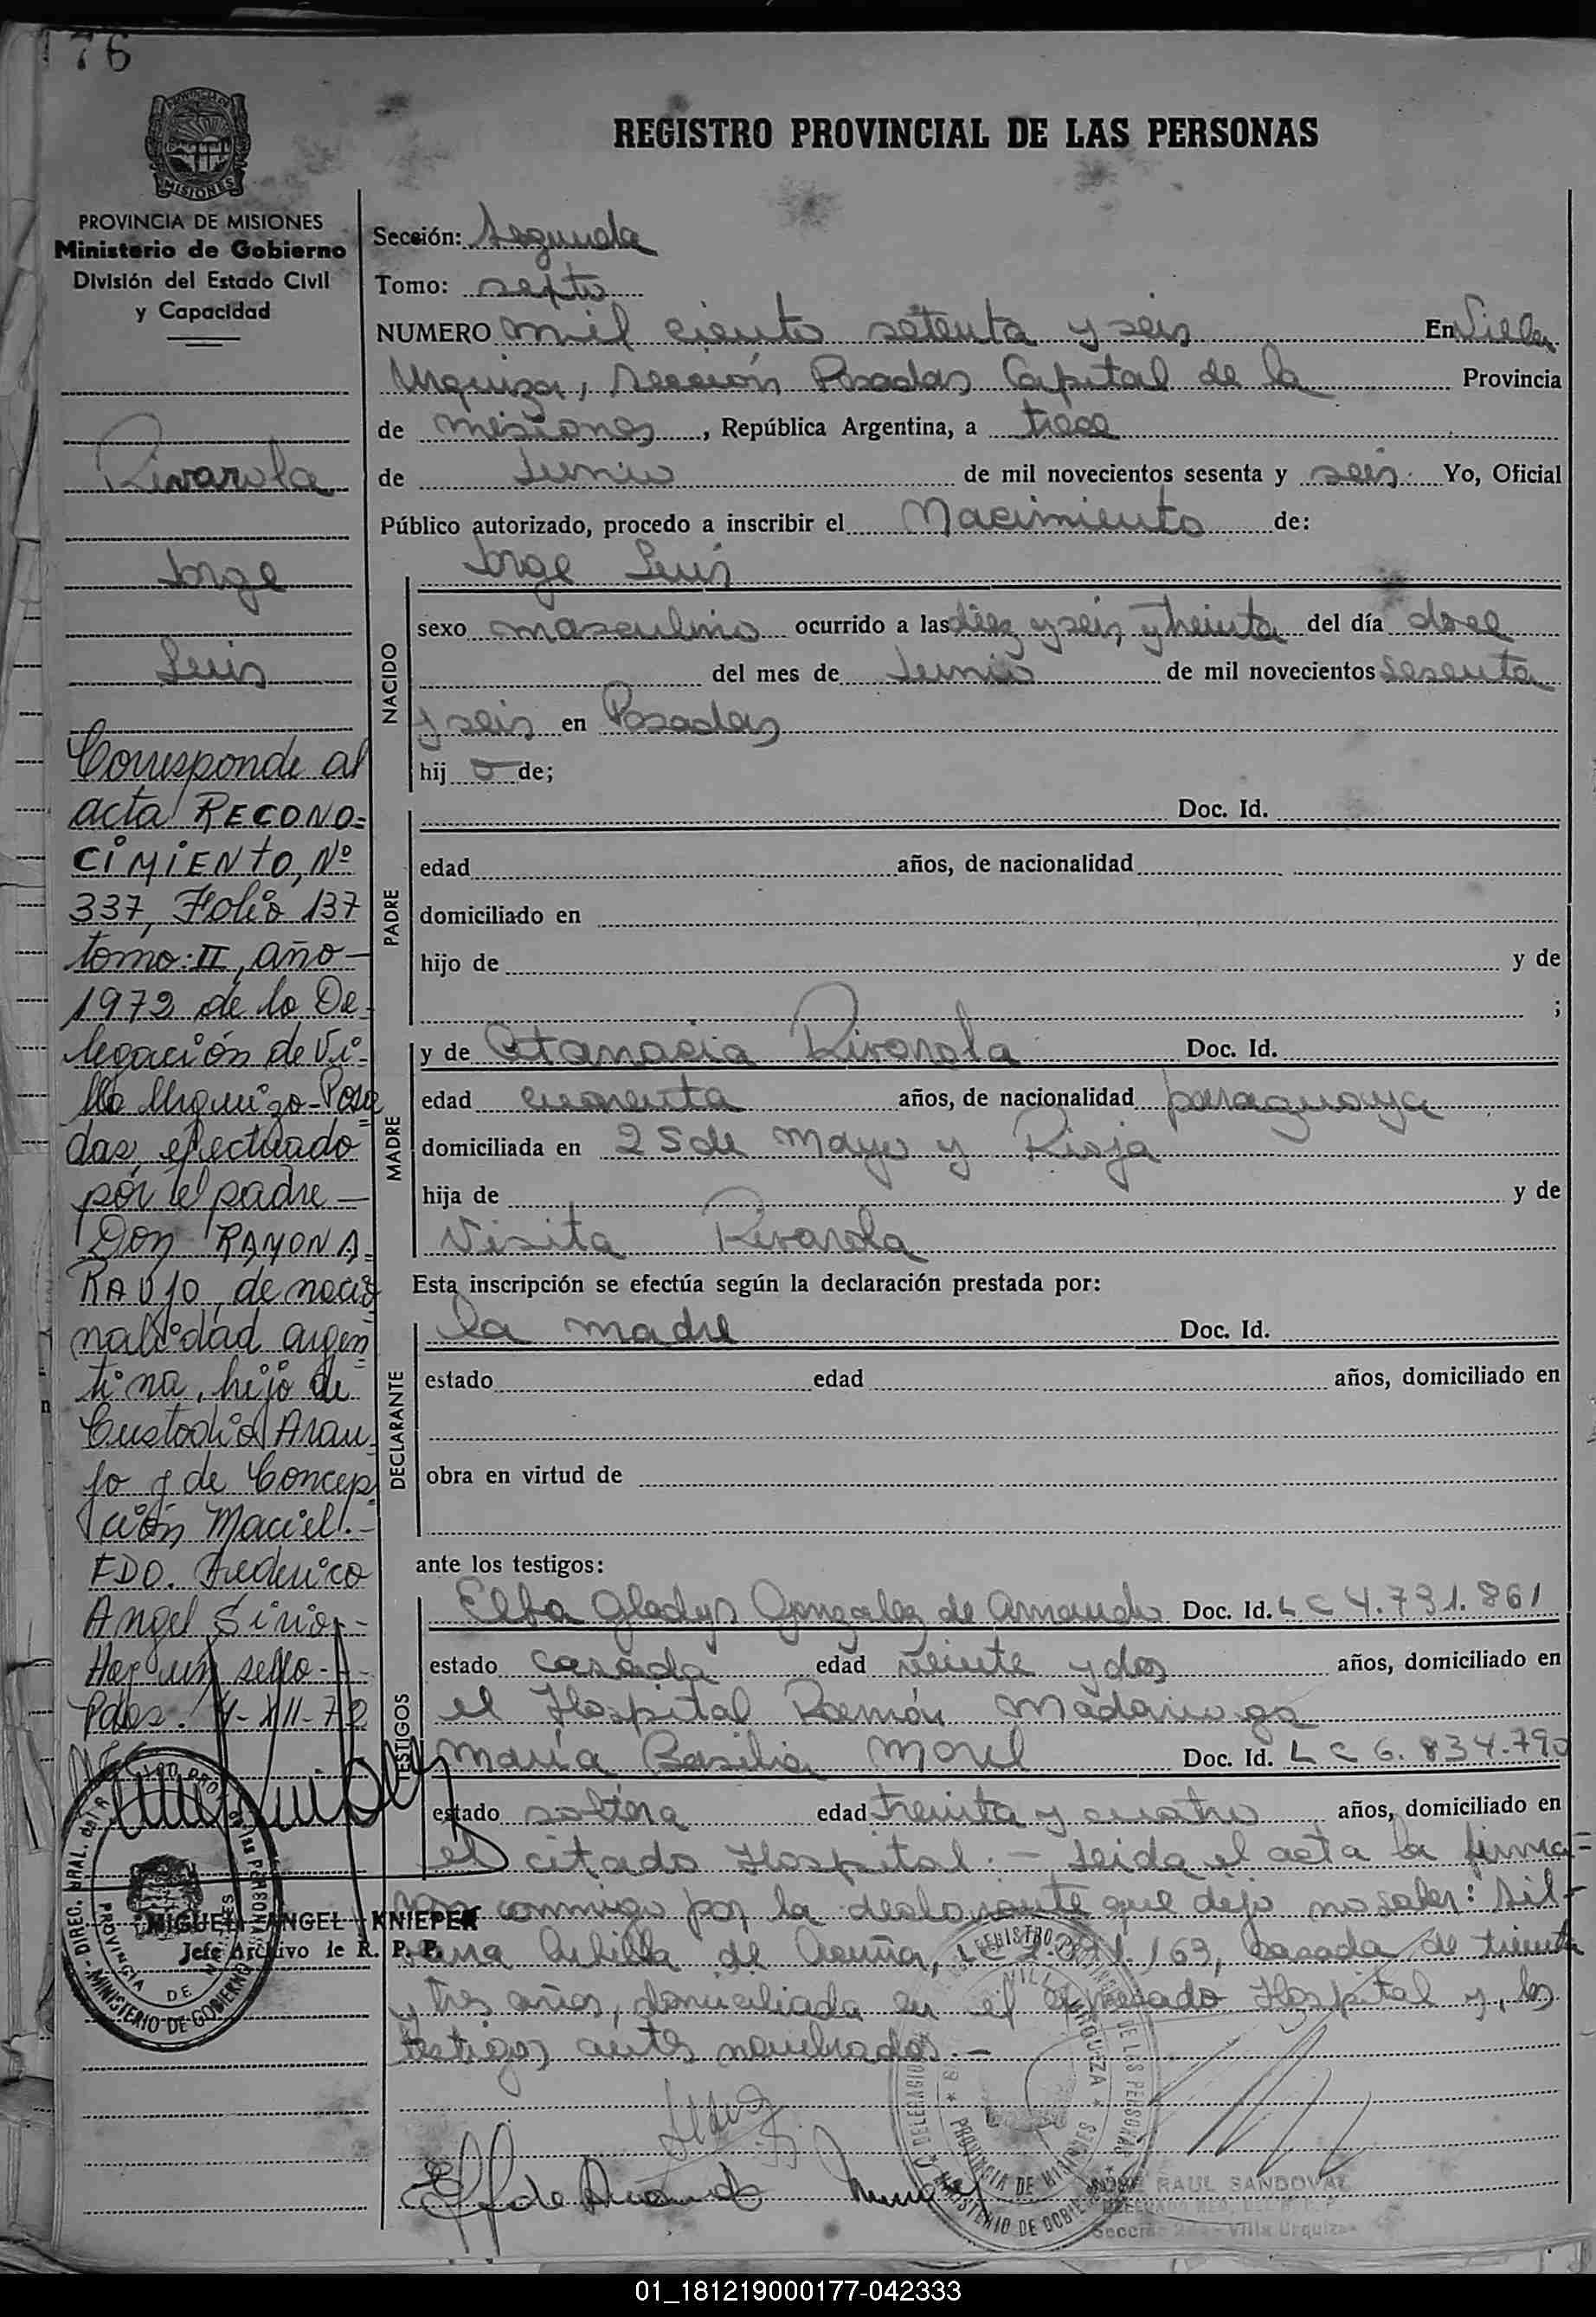 176
REGISTRO PROVINCIAL DE LAS PERSONAS
MISIONES
PROVINCIA DE MISIONES
Ministerio de Gobierno
División del Estado Civil
y Capacidad
Rivarola
Jorge
Luis
Corresponde al
acta RECONO=
CIMIENTO, Nº
337, Folio 137
tomo: II, año-
1972 de la De-
legación de Vi-
lla Urquiza-Posa
das, efectuado
por el padre-
Don RAMON A-
RAUJO, de nacio
nalidad argen
tina, hijo de
Custodio Arau-
jo y de Concep
ción Maciel.-
FDO. Federico
Angel Sirio,-
Hay un sello.-
Pdas. 4-XII-72
MIGUEL ANGEL KNIEPER
Jefe Archivo de R. P. P.
Sección: Segunda
Tomo: septo
NUMERO mil ciento setenta y seis En Villa
Urquiza, Sección Posadas Capital de la Provincia
de misiones, República Argentina, a trece
de Junio de mil novecientos sesenta y seis. Yo, Oficial
Público autorizado, procedo a inscribir el Nacimiento de:
Jorge Luis
NACIDO
sexo masculino ocurrido a las diez y seis y treinta del día doce
del mes de Junio de mil novecientos sesenta
y seis en Posadas
hij o de;
PADRE
Doc. Id.
edad años, de nacionalidad
domiciliado en
hijo de y de
;
MADRE
y de Atanacia Rivarola Doc. Id.
edad cuarenta años, de nacionalidad paraguaya
domiciliada en 25 de Mayo y Rioja
hija de y de
Visita Rivarola
Esta inscripción se efectúa según la declaración prestada por:
DECLARANTE
la madre Doc. Id.
estado edad años, domiciliado en
obra en virtud de
ante los testigos:
TESTIGOS
Elba Gladys Gonzalez de Doc. Id. L C 4.731.861
estado casada edad veinte y dos años, domiciliado en
el Hospital Ramón Madariaga
María Basilia Morel Doc. Id. L C 6.834.790
estado soltera edad treinta y cuatro años, domiciliado en
el citado Hospital.- Leida el acta la firma=
conmigo por la declarante que dejo no saber: Sil-
de Acuña, L C 163, casada de treinta
y tres años, domiciliada en el expresado Hospital y, los
testigos antes nombrados.-
RAUL SANDOVAL
Villa Urquiza
01_181219000177-042333